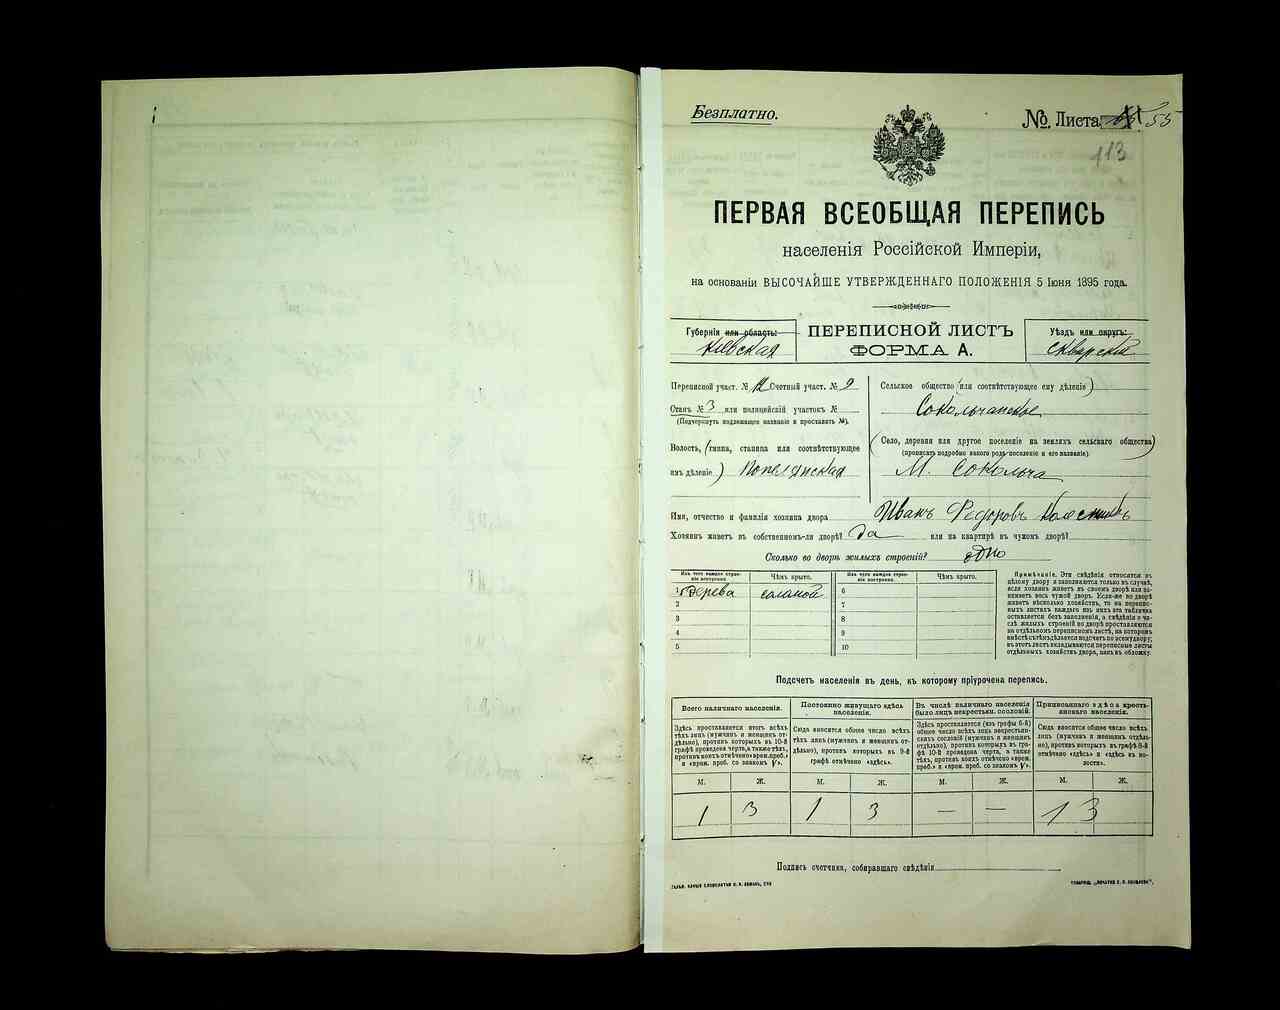 Безплатно.
№ Листа 55
113
ПЕРВАЯ ВСЕОБЩАЯ ПЕРЕПИСЬ
населенія Россійской Имперіи,
на основаніи ВЫСОЧАЙШЕ УТВЕРЖДЕННАГО ПОЛОЖЕНІЯ 5 Іюня 1895 года.
Губернія или область:
Кіевская
ПЕРЕПИСНОЙ ЛИСТЪ
ФОРМА А.
Уѣздъ или округъ:
Сквирскій
Переписной участ. № 12 Счетный участ. № 9
Станъ № 3 или полицейскій участокъ №
(Подчеркнуть надлежащее названіе и проставить №).
Волость, (гмина, станица или соотвѣтствующее
имъ дѣленіе) Попелянская
Сельское общество (или соотвѣтствующее ему дѣленіе)
Сокольчанское
(Село, деревня или другое поселеніе на земляхъ сельскаго общества)
(прописать подробно какого рода поселеніе и его названіе).
М. Сокольча
Имя, отчество и фамилія хозяина двора Иванъ Федоровъ Колесникъ
Хозяинъ живетъ въ собственномъ-ли дворѣ? Да или на квартирѣ въ чужомъ дворѣ?
Сколько во дворѣ жилыхъ строеній? одно
Изъ чего каждое строеніе построено.
Чѣмъ крыто.
Изъ чего каждое строеніе построено.
Чѣмъ крыто.
1 дерева соломой 6
2 7
3 8
4 9
5 10
Примѣчаніе. Эти свѣдѣнія относятся къ
цѣлому двору и заполняются только въ случаѣ,
если хозяинъ живетъ въ своемъ дворѣ или занимаетъ
весь чужой дворъ. Если-же во дворѣ
живетъ нѣсколько хозяйствъ, то на переписныхъ
листахъ каждаго изъ нихъ эта табличка
оставляется безъ заполненія, а свѣдѣнія о числѣ
жилыхъ строеній во дворѣ проставляются
на отдѣльномъ переписномъ листѣ, на которомъ
вмѣстѣ съ тѣмъ дѣлается подсчетъ по всему двору;
въ этотъ листъ вкладываются переписные листы
отдѣльныхъ хозяйствъ двора, какъ въ обложку.
Подсчетъ населенія въ день, къ которому пріурочена перепись.
Всего наличнаго населенія.
Здѣсь проставляется итогъ всѣхъ
тѣхъ лицъ (мужчинъ и женщинъ отдѣльно),
противъ которыхъ въ 10-й
графѣ проведена черта, а также тѣхъ,
противъ коихъ отмѣчено «врем. преб.»
и «врем. преб. со знакомъ V».
Постоянно живущаго здѣсь
населенія.
Сюда вносится общее число всѣхъ
тѣхъ лицъ (мужчинъ и женщинъ отдѣльно),
противъ которыхъ въ 9-й
графѣ отмѣчено «здѣсь».
Въ числѣ наличнаго населенія
было лицъ некрестьянск. сословій.
Здѣсь проставляется (изъ графы 6-й)
общее число всѣхъ лицъ некрестьянскихъ
сословій (мужчинъ и женщинъ
отдѣльно), противъ которыхъ въ графѣ
10-й проведена черта, а также
тѣхъ, противъ коихъ отмѣчено «врем.
преб.» и «врем. преб. со знакомъ V».
Приписаннаго здѣсь крестьянскаго
населенія.
Сюда вносится общее число всѣхъ
лицъ (мужчинъ и женщинъ отдѣльно),
противъ которыхъ въ графѣ 8-й
отмѣчено «здѣсь» и «здѣсь въ волости».
М. Ж. М. Ж. М. Ж. М. Ж.
1 3 1 3 — — 1 3
Подпись счетчика, собиравшаго свѣдѣнія